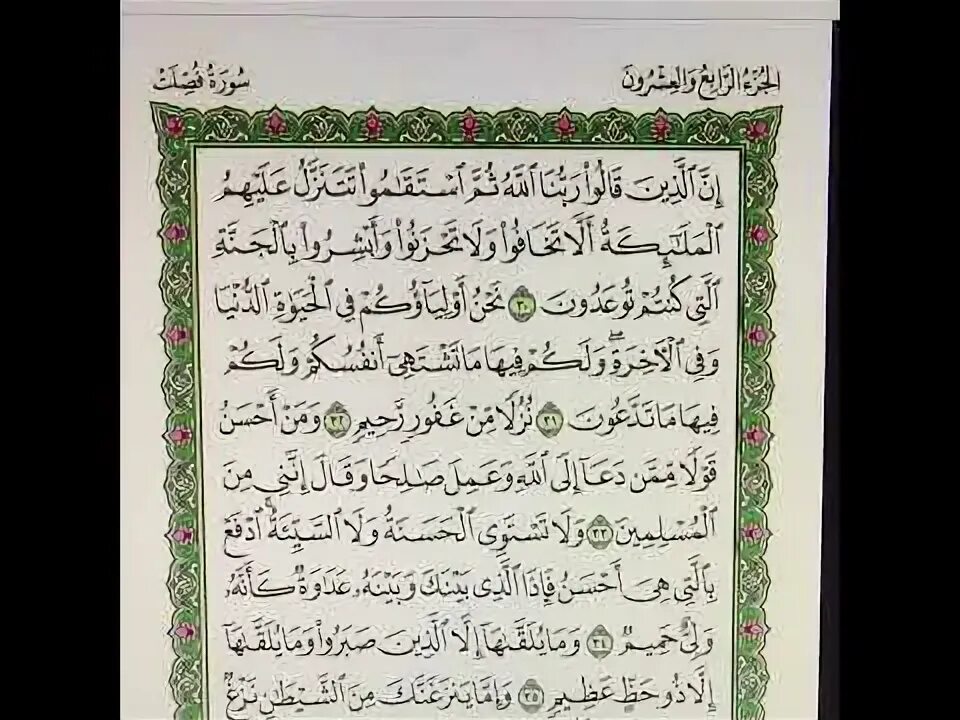 الجزء الرابع والعشرون
سورة فصلت
إِنَّ ٱلَّذِينَ قَالُوا۟ رَبُّنَا ٱللَّهُ ثُمَّ ٱسْتَقَٰمُوا۟ تَتَنَزَّلُ عَلَيْهِمُ
ٱلْمَلَٰٓئِكَةُ أَلَّا تَخَافُوا۟ وَلَا تَحْزَنُوا۟ وَأَبْشِرُوا۟ بِٱلْجَنَّةِ
ٱلَّتِى كُنتُمْ تُوعَدُونَ ٣٠ نَحْنُ أَوْلِيَآؤُكُمْ فِى ٱلْحَيَوٰةِ ٱلدُّنْيَا
وَفِى ٱلْءَاخِرَةِ ۖ وَلَكُمْ فِيهَا مَا تَشْتَهِىٓ أَنفُسُكُمْ وَلَكُمْ
فِيهَا مَا تَدَّعُونَ ٣١ نُزُلًا مِّنْ غَفُورٍ رَّحِيمٍ ٣٢ وَمَنْ أَحْسَنُ
قَوْلًا مِّمَّن دَعَآ إِلَى ٱللَّهِ وَعَمِلَ صَٰلِحًا وَقَالَ إِنَّنِى مِنَ
ٱلْمُسْلِمِينَ ٣٣ وَلَا تَسْتَوِى ٱلْحَسَنَةُ وَلَا ٱلسَّيِّئَةُ ۚ ٱدْفَعْ
بِٱلَّتِى هِىَ أَحْسَنُ فَإِذَا ٱلَّذِى بَيْنَكَ وَبَيْنَهُۥ عَدَٰوَةٌ كَأَنَّهُۥ
وَلِىٌّ حَمِيمٌ ٣٤ وَمَا يُلَقَّىٰهَآ إِلَّا ٱلَّذِينَ صَبَرُوا۟ وَمَا يُلَقَّىٰهَآ
إِلَّا ذُو حَظٍّ عَظِيمٍ ٣٥ وَإِمَّا يَنزَغَنَّكَ مِنَ ٱلشَّيْطَٰنِ نَزْغٌ